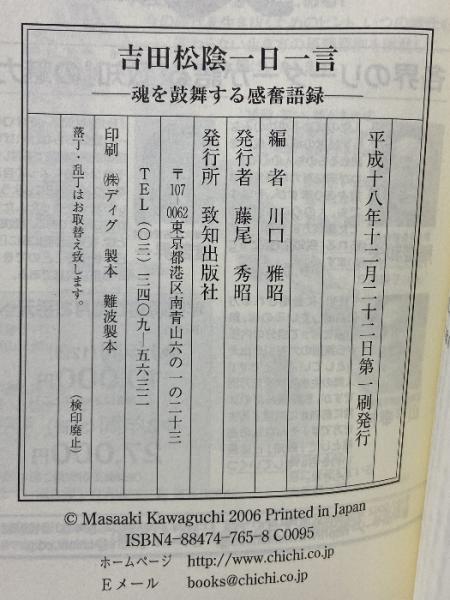 吉田松陰一日一言
―魂を鼓舞する感奮語録―
平成十八年十二月二十二日第一刷発行
編者 川口 雅昭
発行者 藤尾 秀昭
発行所 致知出版社
〒107―0062東京都港区南青山六の一の二十三
TEL(〇三)三四〇九―五六三二
印刷 ㈱ディグ 製本 難波製本
落丁・乱丁はお取替え致します。 (検印廃止)
© Masaaki Kawaguchi 2006 Printed in Japan
ISBN4–88474–765–8 C0095
ホームページ http://www.chichi.co.jp
Eメール books@chichi.co.jp